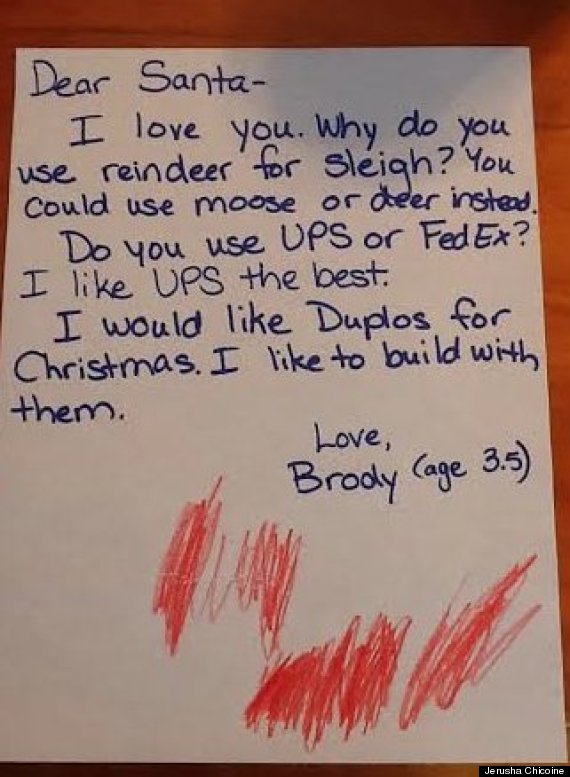 Dear Santa-
I love you. Why do you
use reindeer for sleigh? You
could use moose or deer instead.
Do you use UPS or FedEx?
I like UPS the best.
I would like Duplos for
Christmas. I like to build with
them.
Love,
Brody (age 3.5)
Jerusha Chicoine